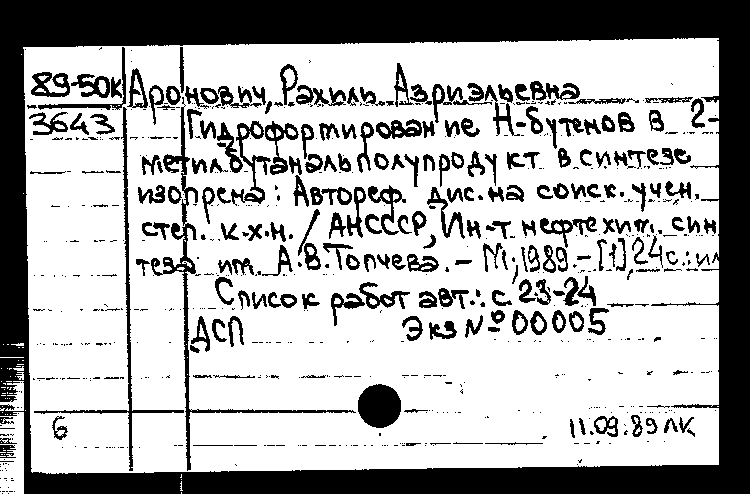 89-50К Аронович, Рахиль Азриэльевна
3643 Гидроформирование Н-бутенов в 2-
метилбутаналь полупродукт в синтезе
изопрена: Автореф. дис. на соиск. учен.
степ. к.х.н. / АНСССР, Ин-т нефтехим. син
теза им. А.В.Топчева. – М., 1989. – [1], 24 с.: ил
Список работ авт.: с. 23-24
ДСП Экз № 00005
6 11.09.89 ЛК